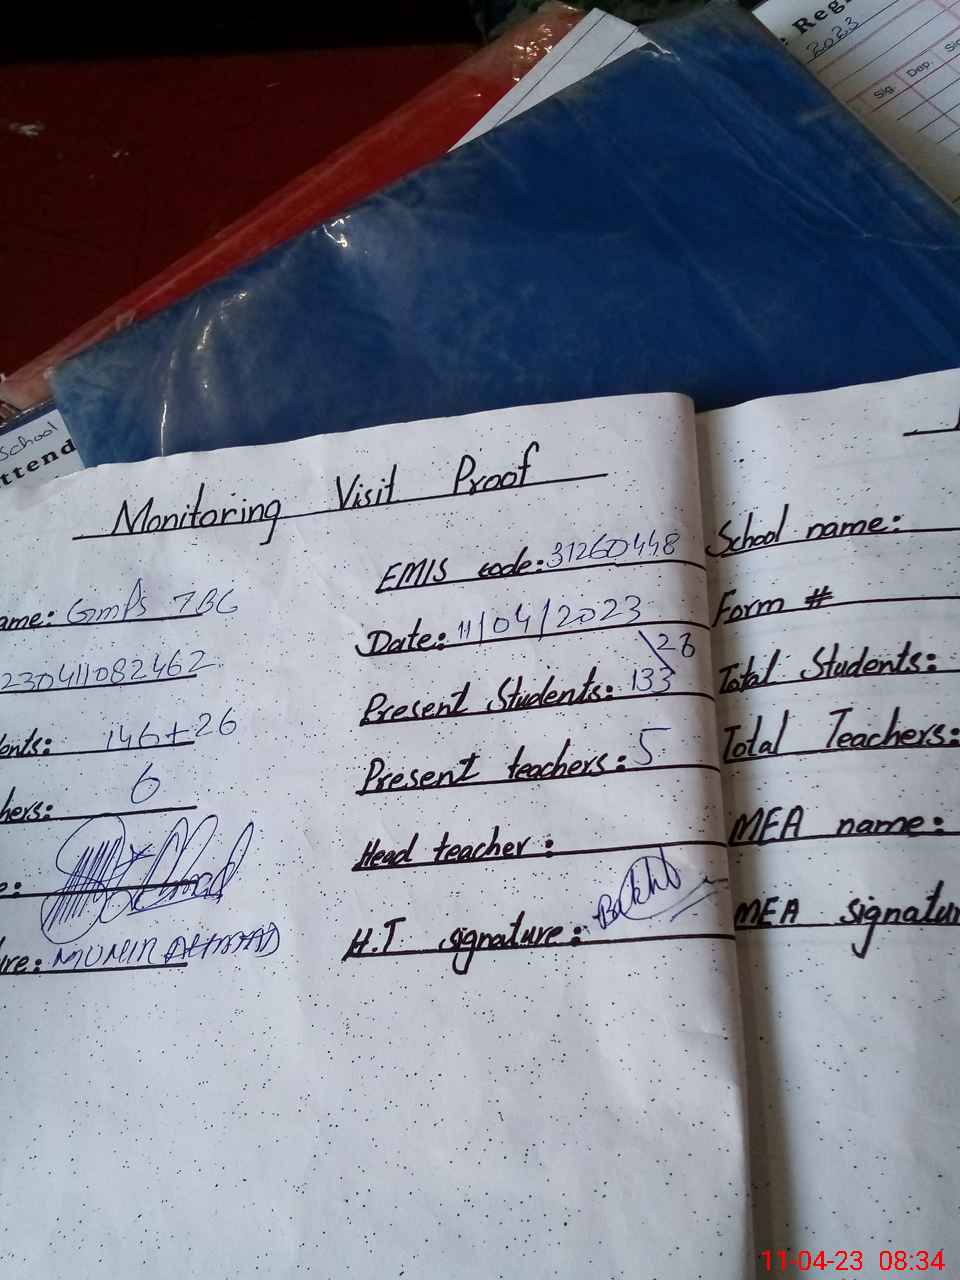 Reg
2023
Sig. Dep. Sig
School
ttend
Monitoring Visit Proof
ame: GmPS 7BC
EMIS code: 31260448
230411082462
Date: 11/04/2023
ents: 146+26
Present Students: 133\26
hers: 6
Present teachers: 5
Head teacher:
ure: MUNIR AHMAD
H.T signature: Bakht
School name:
Form #
Total Students:
Total Teachers:
MEA name:
MEA signatur
11-04-23 08:34